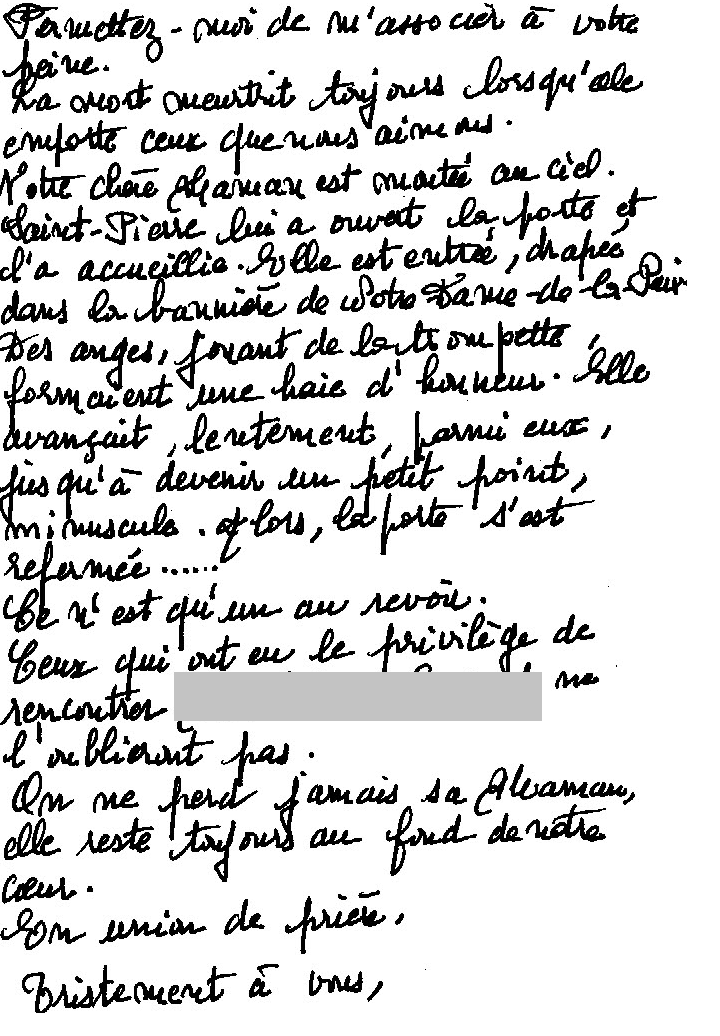 Permettez-moi de m'associer à votre
peine.
La mort meurtrit toujours lorsqu'elle
emporte ceux que nous aimons.
Votre chère Maman est montée au ciel.
Saint-Pierre lui a ouvert la porte et
l'a accueillie. Elle est entrée, drapée
dans la bannière de Notre Dame-de-la-Paix
Des anges, jouant de la trompette,
formaient une haie d'honneur. Elle
avançait, lentement, parmi eux,
jusqu'à devenir un petit point,
minuscule. Alors, la porte s'est
refermée ......
Ce n'est qu'un au revoir.
Ceux qui ont eu le privilège de
rencontrer ne
l'oublieront pas.
On ne perd jamais sa Maman,
elle reste toujours au fond de notre
cœur.
En union de prière,
Tristement à vous,